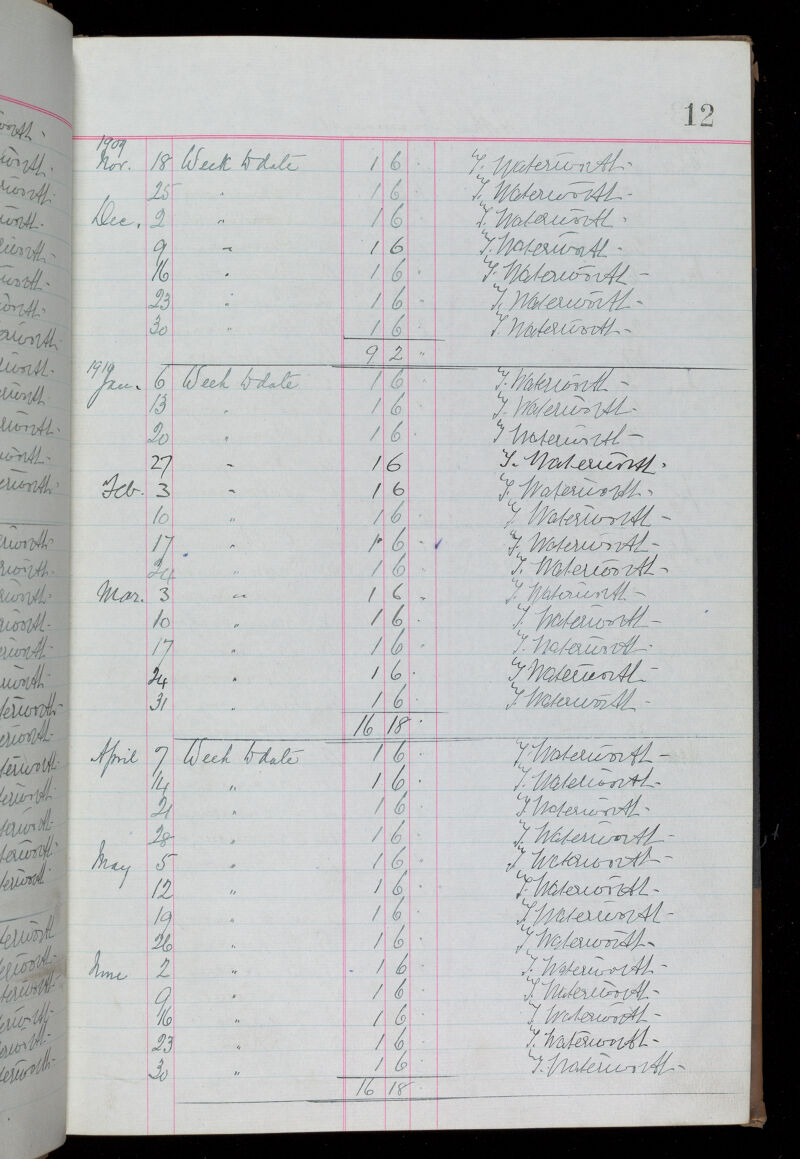 12
1909
Nov. 18 Week to date 1 6 . T. Waterworth.
25 " 1 6 . T. Waterworth.
Dec. 2 " 1 6 T. Waterworth.
9 " 1 6 T. Waterworth.
16 " 1 6 . T. Waterworth -
23 " 1 6 . T. Waterworth -
30 " 1 6 . T. Waterworth -
9 2 "
1910
Jan. 6 Week to date 1 6 . T. Waterworth -
13 " 1 6 . T. Waterworth.
20 " 1 6 . T Waterworth -
27 " 1 6 T. Waterworth.
Feb. 3 " 1 6 T. Waterworth.
10 " 1 6 . T. Waterworth -
17 " 1 6 . T. Waterworth -
24 " 1 6 . T. Waterworth -
Mar. 3 " 1 6 . T. Waterworth -
10 " 1 6 . T. Waterworth -
17 " 1 6 . T. Waterworth.
24 " 1 6 . T Waterworth -
31 " 1 6 . T Waterworth -
16 18 .
April 7 Week to date 1 6 . T. Waterworth -
14 " 1 6 . T. Waterworth.
21 " 1 6 T. Waterworth.
28 " 1 6 . T. Waterworth -
May 5 " 1 6 . T Waterworth -
12 " 1 6 . T. Waterworth -
19 " 1 6 . T. Waterworth -
26 " 1 6 . T Waterworth -
June 2 " 1 6 . T. Waterworth -
9 " 1 6 . T. Waterworth -
16 " 1 6 . T Waterworth -
23 " 1 6 . T. Waterworth -
30 " 1 6 . T. Waterworth -
16 18 .